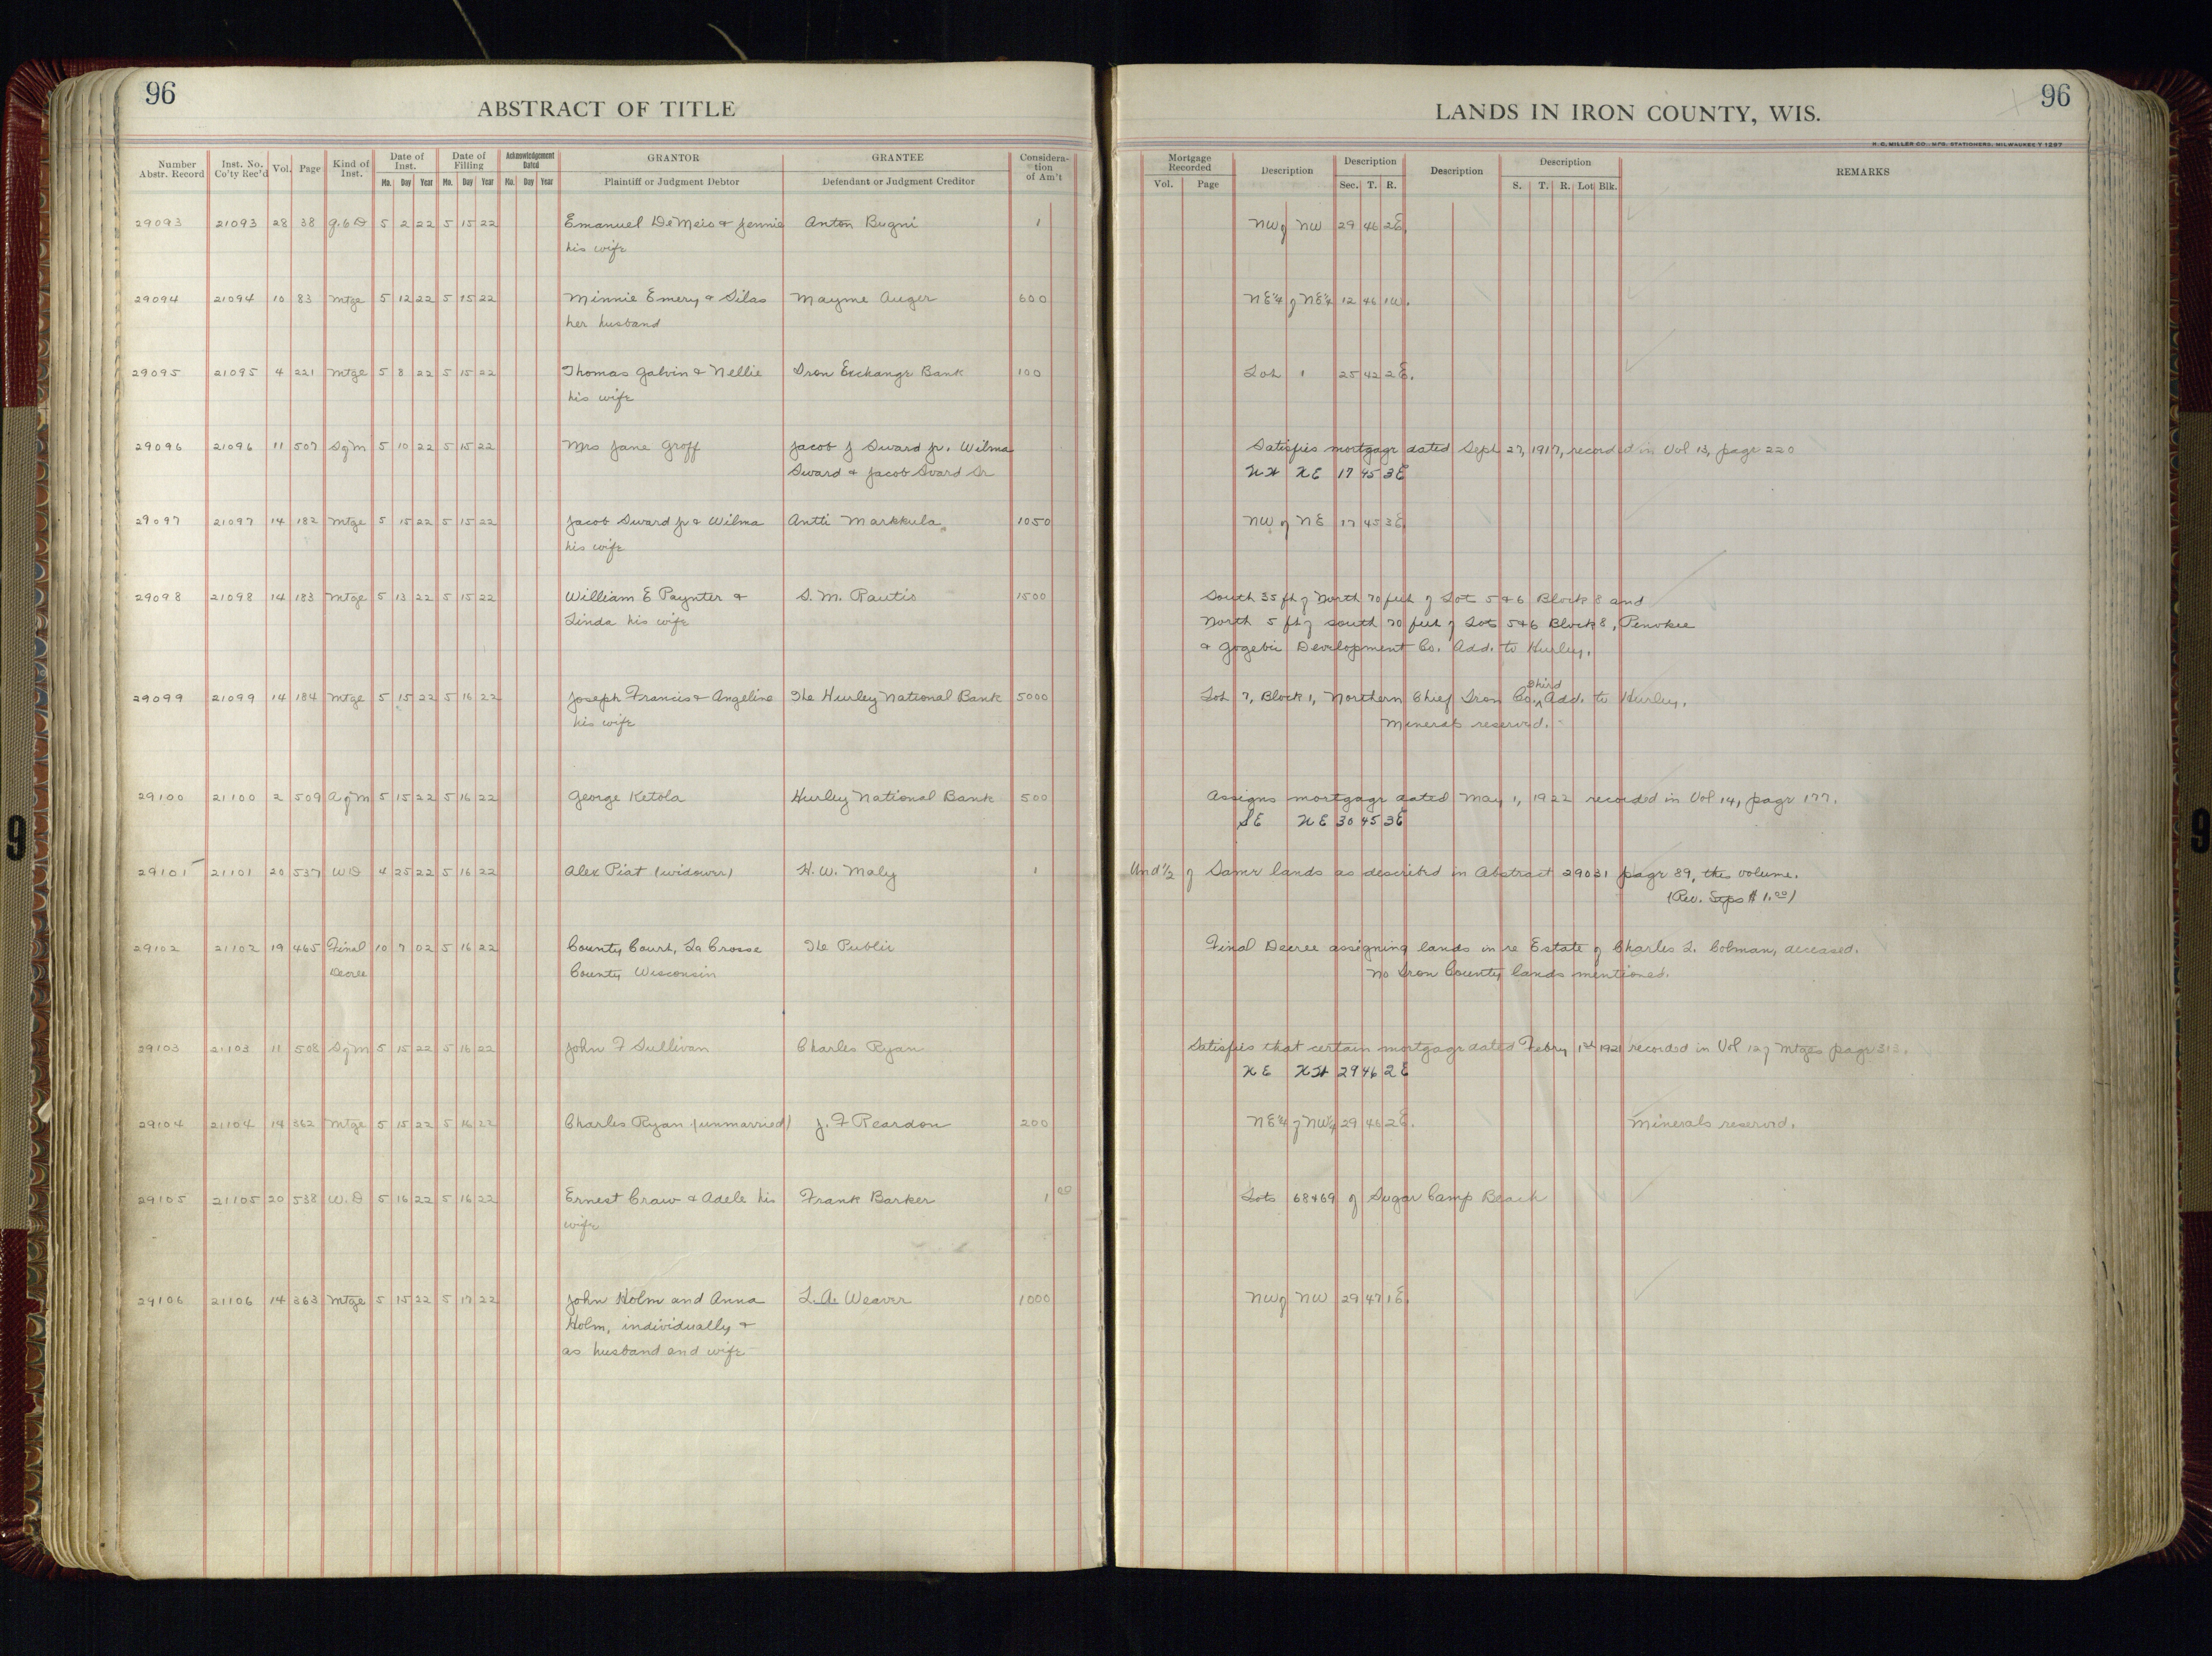 96
ABSTRACT OF TITLE
LANDS IN IRON COUNTY, WIS.
96
H. C. MILLER CO., MFG. STATIONERS, MILWAUKEE
Number Abstr. Record | Inst. No. Co'ty Rec'd | Vol. | Page | Kind of Inst. | Date of Inst. Mo. Day Year | Date of Filling Mo. Day Year | Acknowledgement Dated Mo. Day Year | GRANTOR Plaintiff or Judgment Debtor | GRANTEE Defendant or Judgment Creditor | Consideration of Am't | Mortgage Recorded Vol. Page | Description | Description Sec. T. R. | Description | Description S. T. R. Lot Blk. | REMARKS
29093 21093 28 38 5 2 22 5 15 22 Emanuel DeMeis & Jennie Anton Bugni 1 NW of NW 29 46 2E.
his wife
29094 21094 10 83 Mtge 5 12 22 5 15 22 Minnie Emery & Silas Mayme Auger 600 NE¼ of NE¼ 12 46 1W.
her husband
29095 21095 4 221 Mtge 5 8 22 5 15 22 Thomas Galvin & Nellie Iron Exchange Bank 100 Lot 1 25 42 2E.
his wife
29096 21096 11 507 SofM 5 10 22 5 15 22 Mrs Jane Groff Jacob J Sward Jr. Wilma Satisfies mortgage dated Sept 27, 1917, recorded in Vol 13, page 220
Sward & Jacob Svard Sr NW NE 17 45 3E
29097 21097 14 182 Mtge 5 15 22 5 15 22 Jacob Sward Jr & Wilma Antti Markkula 1050 NW of NE 17 45 3E.
his wife
29098 21098 14 183 Mtge 5 13 22 5 15 22 William E Paynter & S. M. Rautis 1500 South 35 ft of North 70 feet of Lot 5&6 Block 8 and
Linda his wife North 5 ft of south 70 feet of Lots 5&6 Block 8, Penokee
& Gogebic Development Co. Add. to Hurley.
29099 21099 14 184 Mtge 5 15 22 5 16 22 Joseph Francis & Angeline The Hurley National Bank 5000 Lot 7, Block 1, Northern Chief Iron Co. Third Add. to Hurley.
his wife Minerals reserved.
29100 21100 2 509 AofM 5 15 22 5 16 22 George Ketola Hurley National Bank 500 Assigns mortgage dated May 1, 1922 recorded in Vol 14, page 177.
SE NE 30 45 3E
29101 21101 20 537 WD 4 25 22 5 16 22 Alex Piat (widower) H. W. Maly 1 Und ½ of Same lands as described in Abstract 29031 page 89, this volume.
(Rev. Stps $1.00)
29102 21102 19 465 Final 10 7 02 5 16 22 County Court, La Crosse The Public Final Decree assigning lands in re Estate of Charles L. Colman, deceased.
Decree County Wisconsin No Iron County lands mentioned.
29103 21103 11 508 SofM 5 15 22 5 16 22 John F Sullivan Charles Ryan Satisfies that certain mortgage dated Febry 1st 1921 recorded in Vol 12 of Mtges page 313.
NE NW 29 46 2E
29104 21104 14 362 Mtge 5 15 22 5 16 22 Charles Ryan (unmarried) J. F Reardon 200 NE¼ of NW¼ 29 46 2E. Minerals reserved.
29105 21105 20 538 W.D 5 16 22 5 16 22 Ernest Craw & Adele his Frank Barker 1 00 Lots 68&69 of Sugar Camp Beach
wife
29106 21106 14 363 Mtge 5 15 22 5 17 22 John Holm and Anna L. A. Weaver 1000 NW of NW 29 47 1E.
Holm, individually &
as husband and wife
9
9